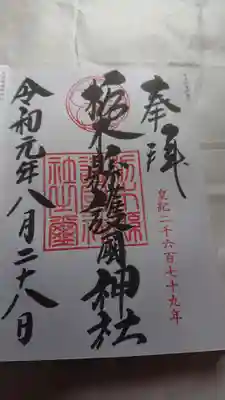 奉拝
皇紀二千六百七十九年
栃木縣護國神社
令和元年八月二十八日